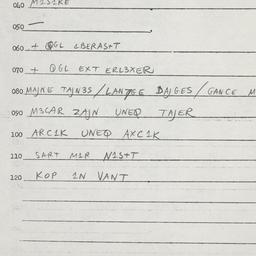 040 M1S1KE
050 —
060 + QGL LBERAS+T
070 + QGL EXT ERL3XER
080 MAJNE TAJN3S / LANTGE DAJGES / GANCE M
090 M3CAR ZAJN UNEQ TAJER
100 ARC1K UNEQ AXC1K
110 SART M1R N1S+T
120 KOP 1N VANT